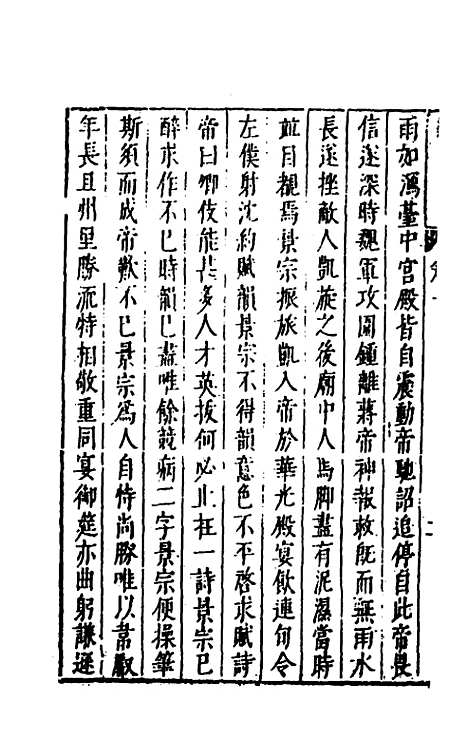 雨如瀉臺中宮殿皆自震動帝馳詔追停自此帝畏
信遂深時魏軍攻圍鍾離蔣帝神報敕既而無雨水
長遂挫敵人凱旋之後廟中人馬脚盡有泥濕當時
並目覩焉景宗振旅凱入帝於華光殿宴飲連句令
左僕射沈約賦韻景宗不得韻意色不平啓求賦詩
帝曰卿伎能甚多人才英拔何必止在一詩景宗已
醉求作不已時韻已盡唯餘競病二字景宗便操筆
斯須而成帝歎不已景宗爲人自恃尚勝唯以韋叡
年長且州里勝流特相敬重同宴御筵亦曲躬謙遜